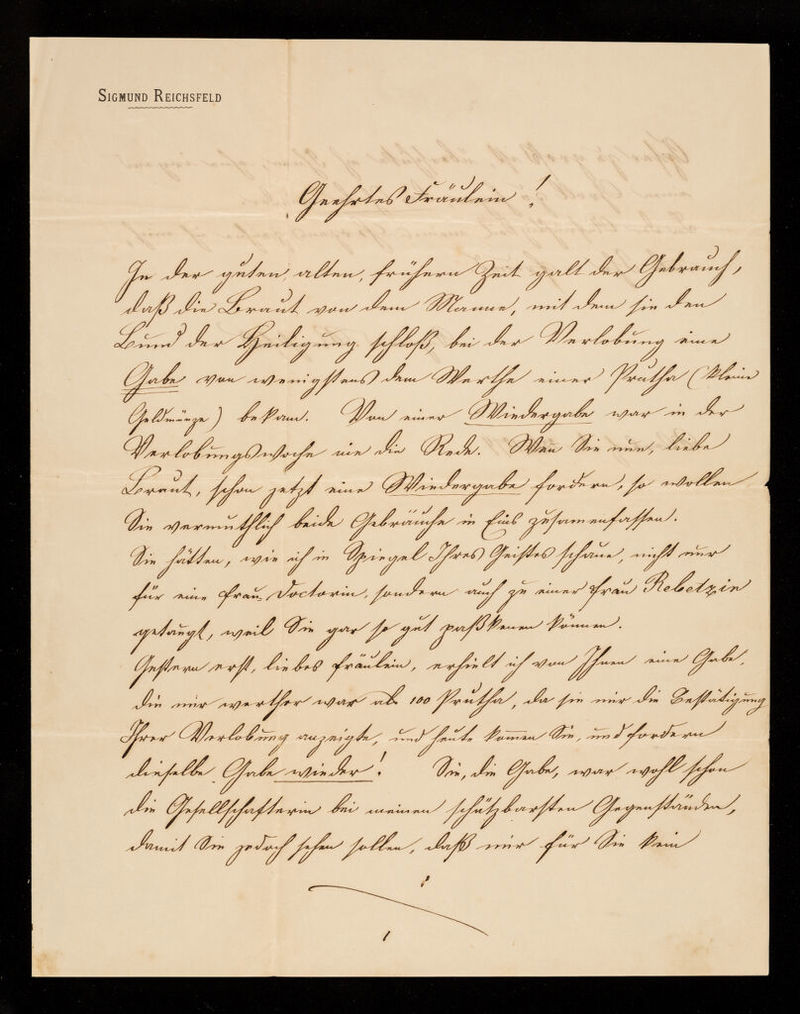 Sigmund Reichsfeld
Geehrtes Fräulein!
In der guten, alten, frühern Zeit galt der Gebrauch,
daß die Braut von dem Manne, mit dem sie den
Bund der Heiligung schloß, bei der Verlobung eine
Gabe von wenigstens dem Werthe einer Prutha (kleine
Geldmünze) bekam. Von einer Wiedergabe war in der
Verlobungswoche nie die Rede. Wen Sie nun, liebe
Braut, schon jetzt eine Wiedergabe fordern, so wollen
Sie vermuthlich beide Gebräuche in Eins zusamenfassen.
Sie hätten, wie ich in Spiegel Ihres Geistes schaue, nicht nur
für eine Frau Doctorin, sondern auch zu einer Frau Rebetzin
getaugt, weil Sie gar so gut paßkenen können.
Gestern erst, liebes Fräulein, erhielt ich von Ihnen eine Gabe,
die mir werther war als 100 Prutha, da sie mir die Bestätigung
Ihrer Verlobung anzeigte, und heute komen Sie, und fordern
dieselbe Gabe wieder! Sie, die Gabe, war wohl schon
die Gesellschafterin bei meinen schätzbarsten Gegenständen,
damit Sie jedoch sehen sollen, daß mir für Sie kein
1